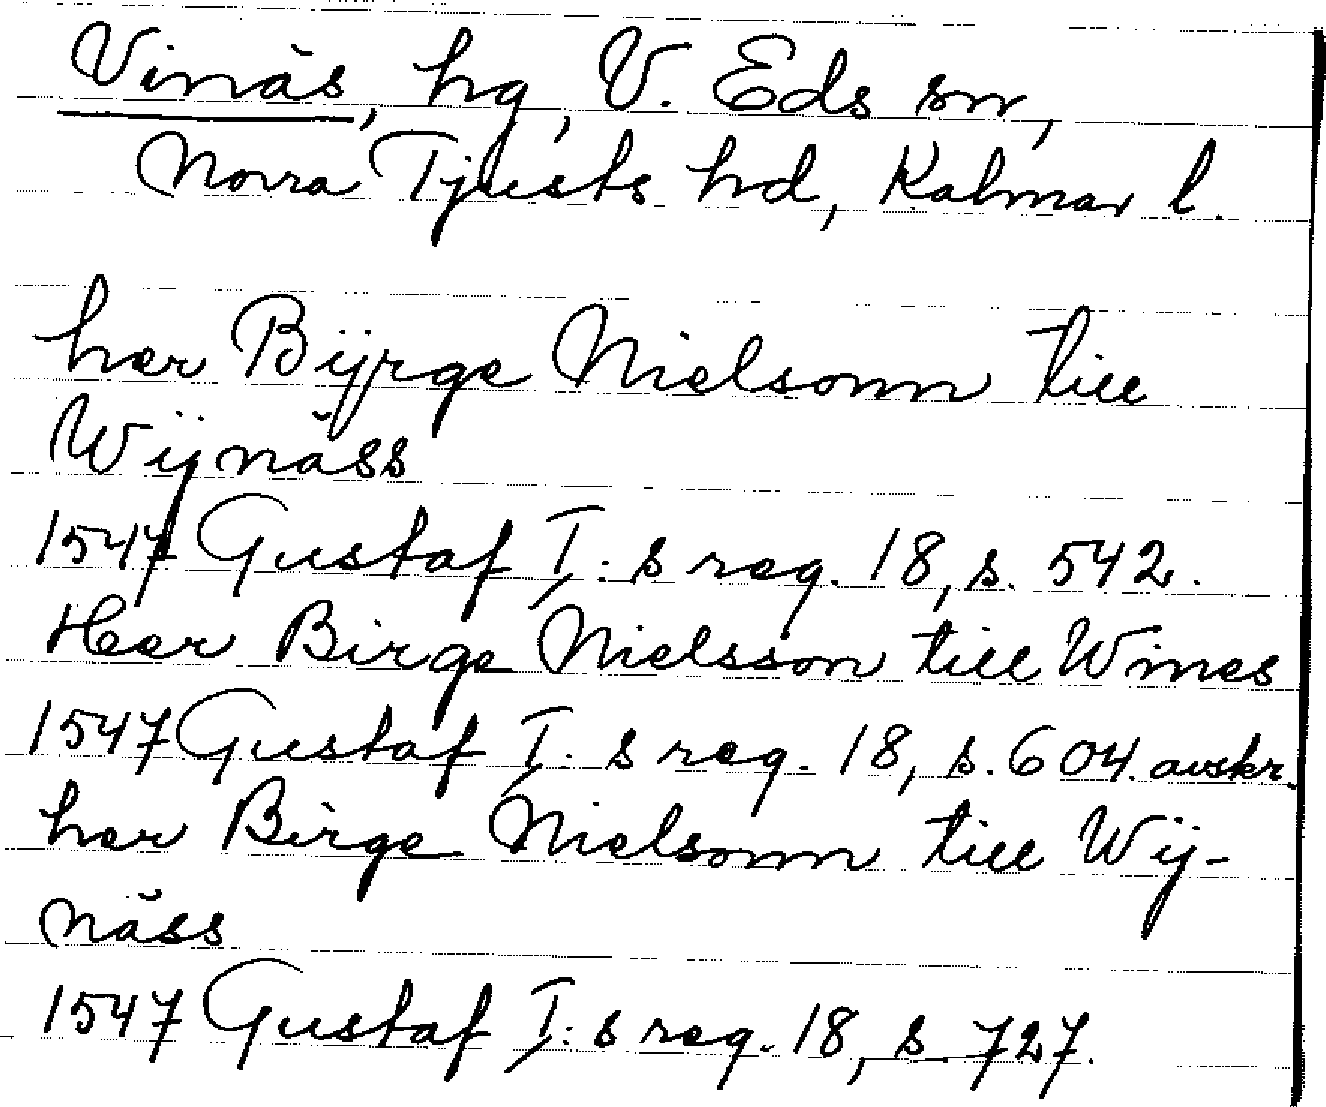 Vinäs, hg, V. Eds sn,
Norra Tjusts hd, Kalmar l.
her Bÿrge Nielsonn till
Wÿnäss
1547 Gustaf I:s reg. 18, s. 542.
Heer Birge Nielsson till Wines
1547 Gustaf I:s reg. 18, s. 604. avskr.
her Birge Nielsonn till Wÿ-
näss
1547 Gustaf I:s reg. 18, s. 727.